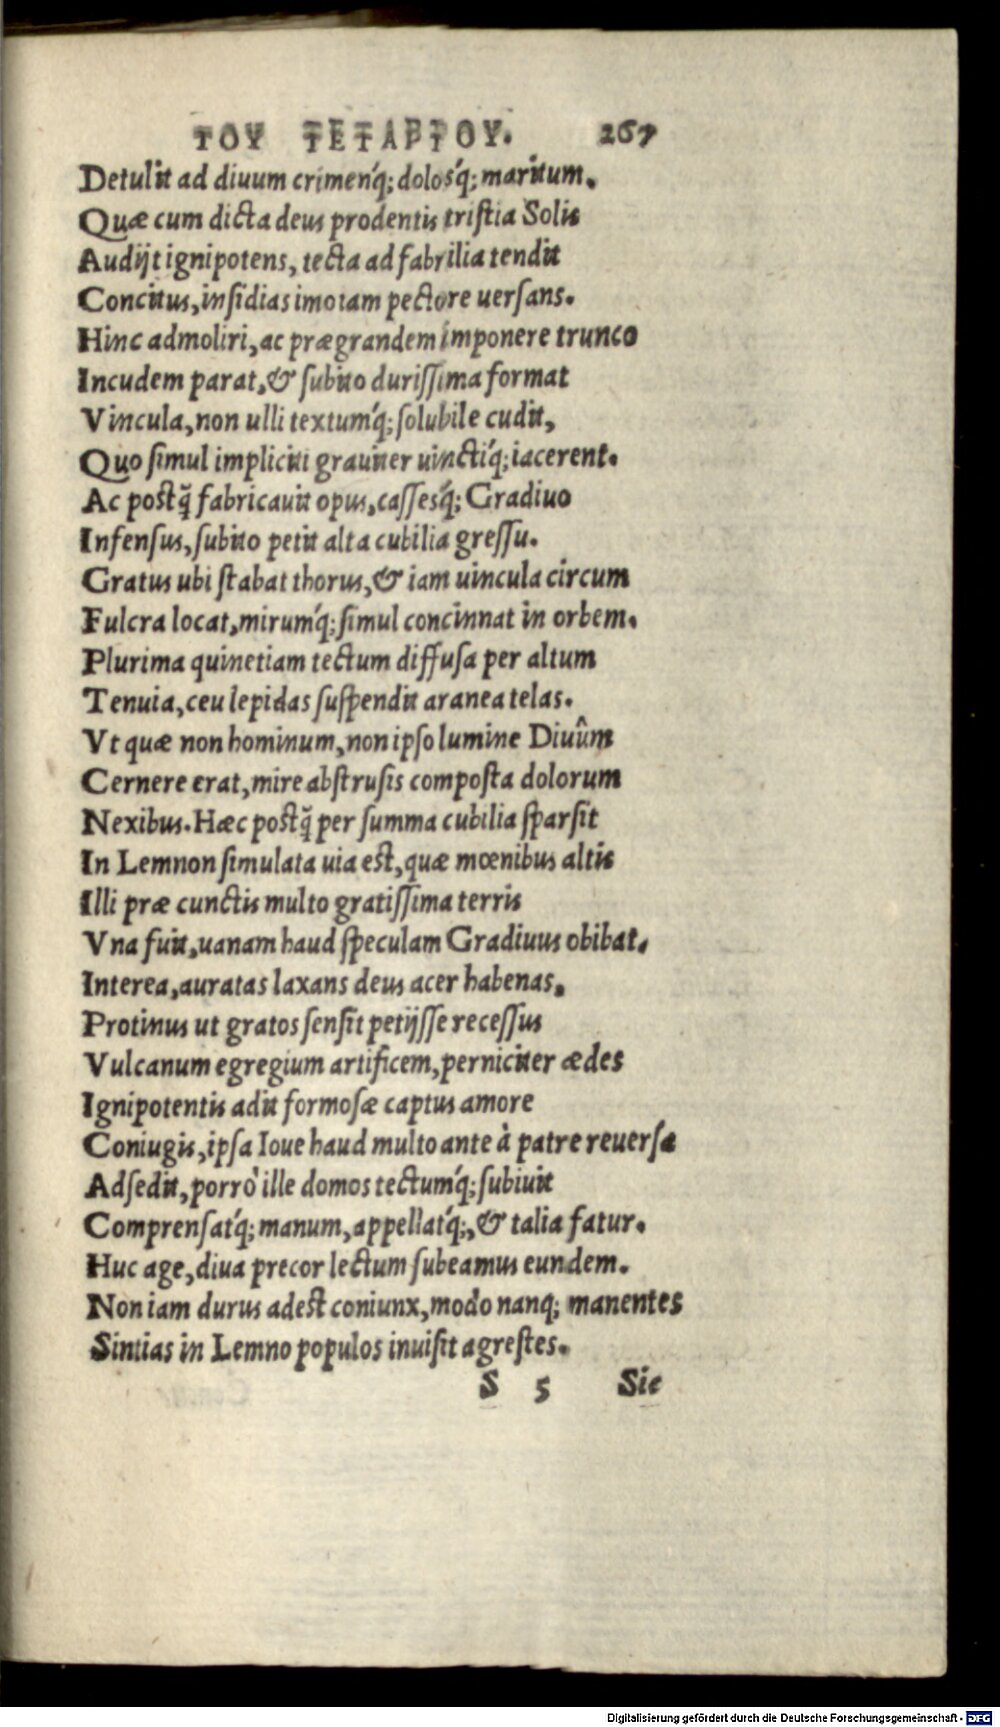 ΤΟΥ ΤΕΤΑΡΤΟΥ. 267
Detulit ad diuum crimenq́; dolosq́; maritum.
Quæ cum dicta deus prodentis tristia Solis
Audijt ignipotens, tecta ad fabrilia tendit
Concitus, insidias imo iam pectore uersans.
Hinc admoliri, ac prægrandem imponere trunco
Incudem parat, & subito durissima format
Vincula, non ulli textumq́; solubile cudit,
Quo simul impliciti grauiter uinctiq́; iacerent.
Ac postq̃ fabricauit opus, cassesq́; Gradiuo
Infensus, subito petit alta cubilia gressu.
Gratus ubi stabat thorus, & iam uincula circum
Fulcra locat, mirumq́; simul concinnat in orbem.
Plurima quinetiam tectum diffusa per altum
Tenuia, ceu lepidas suspendit aranea telas.
Vt quæ non hominum, non ipso lumine Diuûm
Cernere erat, mire abstrusis composta dolorum
Nexibus. Hæc postq̃ per summa cubilia sparsit
In Lemnon simulata uia est, quæ mœnibus altis
Illi præ cunctis multo gratissima terris
Vna fuit, uanam haud speculam Gradiuus obibat.
Interea, auratas laxans deus acer habenas,
Protinus ut gratos sensit petijsse recessus
Vulcanum egregium artificem, perniciter ædes
Ignipotentis adit formosæ captus amore
Coniugis, ipsa Ioue haud multo ante à patre reuersa
Adsedit, porrò ille domos tectumq́; subiuit
Comprensatq́; manum, appellatq́;, & talia fatur.
Huc age, diua precor lectum subeamus eundem.
Non iam durus adest coniunx, modo nanq; manentes
Sintias in Lemno populos inuisit agrestes.
S 5 Sic
Digitalisierung gefördert durch die Deutsche Forschungsgemeinschaft - DFG